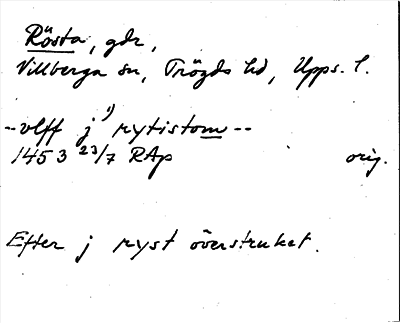 Rösta, gdr,
Villberga sn, Trögds hd, Upps. l.
--vlff j 1) rytistom--
1453 23/7 RAp orig.
Efter j ryst överstruket.